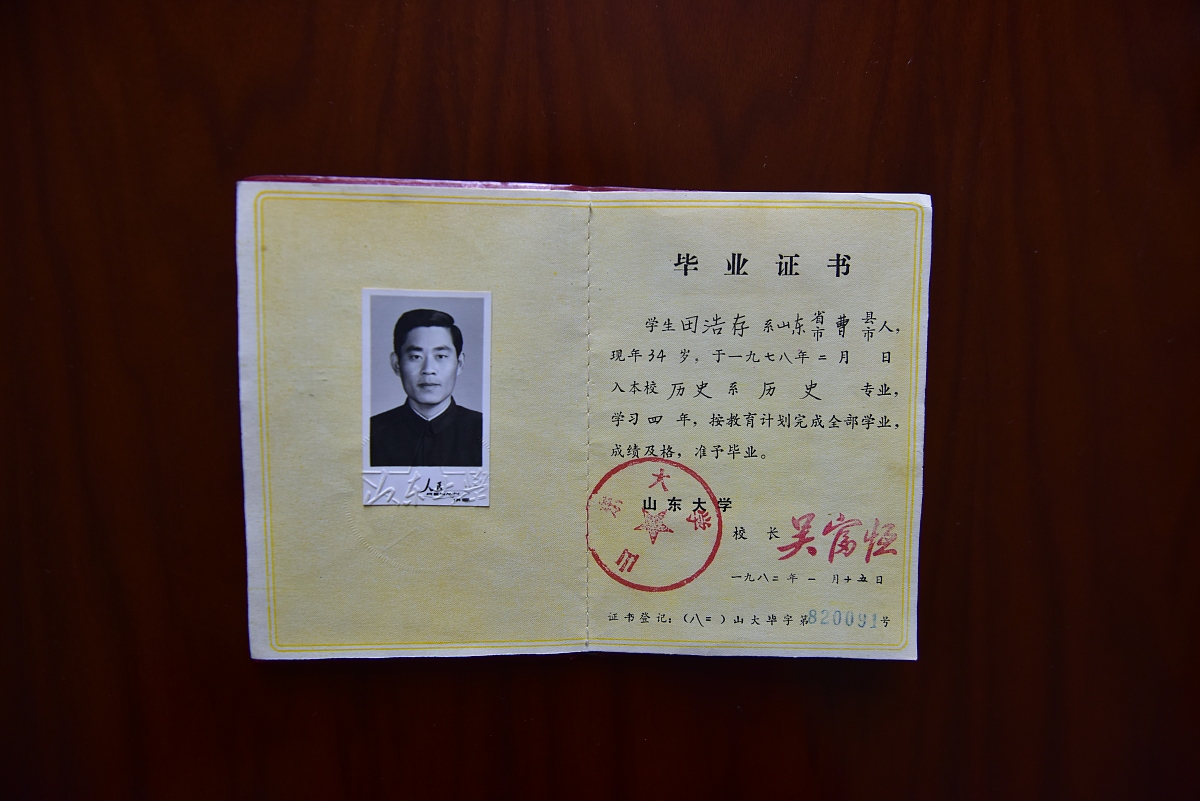 毕业证书
学生田浩存系山东省市曹县市人，
现年34岁，于一九七八年二月 日
入本校历史系历史专业，
学习四年，按教育计划完成全部学业，
成绩及格，准予毕业。
山东大学
山东大学
校长 吴富恒
一九八二年一月十五日
证书登记：（八二）山大毕字第820091号
山东大学
人民